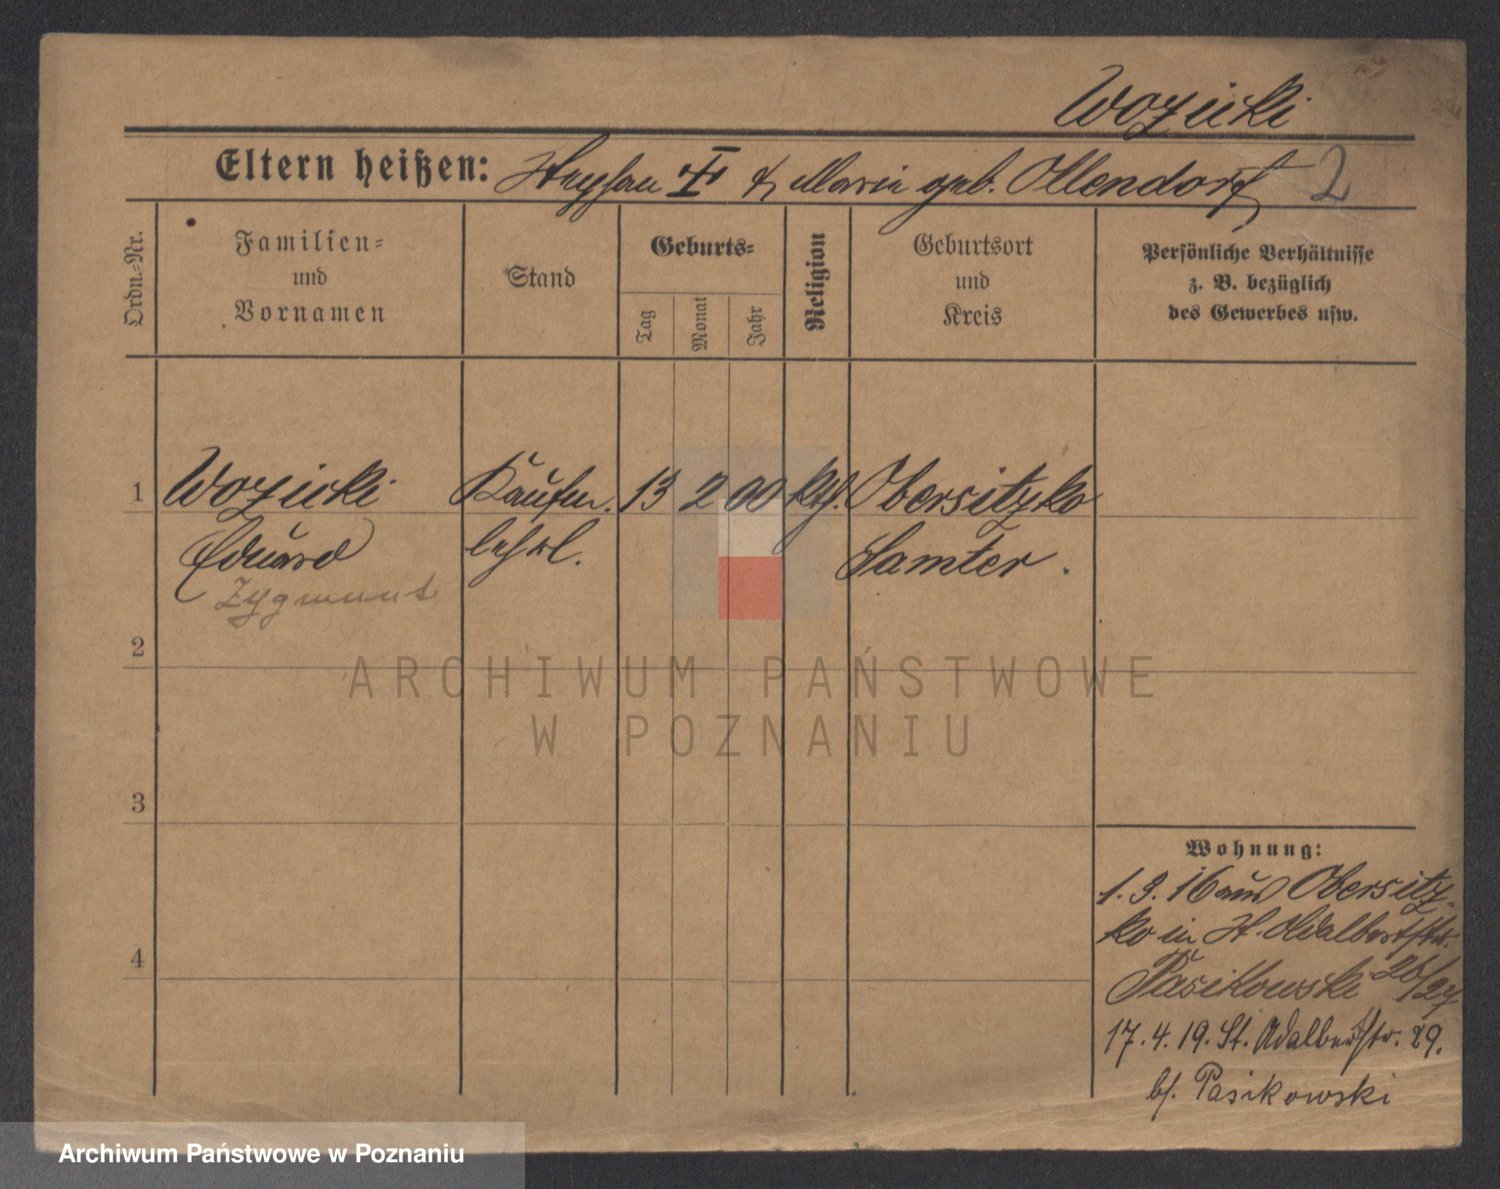 Wozicki
Eltern heißen: Stephan † & Maria geb. Ollendorf 2
Ordn.-Nr.
Familien=
und
Vornamen
Stand
Geburts=
Tag
Monat
Jahr
Religion
Geburtsort
und
Kreis
Persönliche Verhältnisse
z. B. bezüglich
des Gewerbes usw.
1 Wozicki Kaufm. 13 2 00 kth. Obersitzko
Eduard lehrl. Samter.
Zygmunt
2
3
4
Wohnung:
1.3.16 aus Obersitz-
ko in St. Adalbertstr.
Pasikowski 26/27
17.4.19. St. Adalbertstr. 29.
b/. Pasikowski
ARCHIWUM PAŃSTWOWE
W POZNANIU
Archiwum Państwowe w Poznaniu